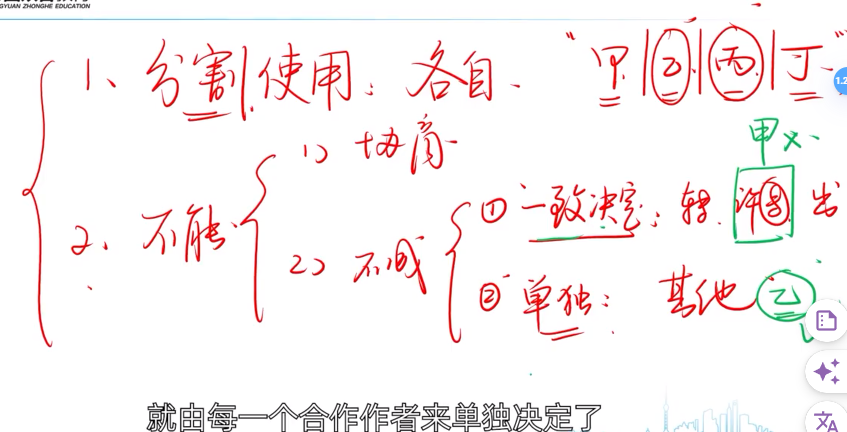 GYUAN ZHONGHE EDUCATION
1、分割使用：各自、“甲|乙|丙|丁”
甲 ×
1）协商
2、不能
①一致决定：转、许 出
2）不成
②单独：其他 乙
就由每一个合作作者来单独决定了